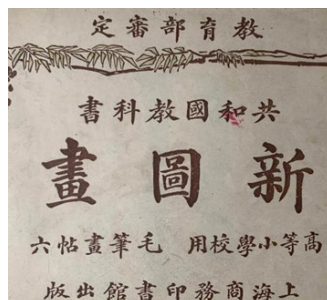 教育部審定
共和國教科書
新圖畫
高等小學校用　毛筆畫帖六
上海商務印書館出版